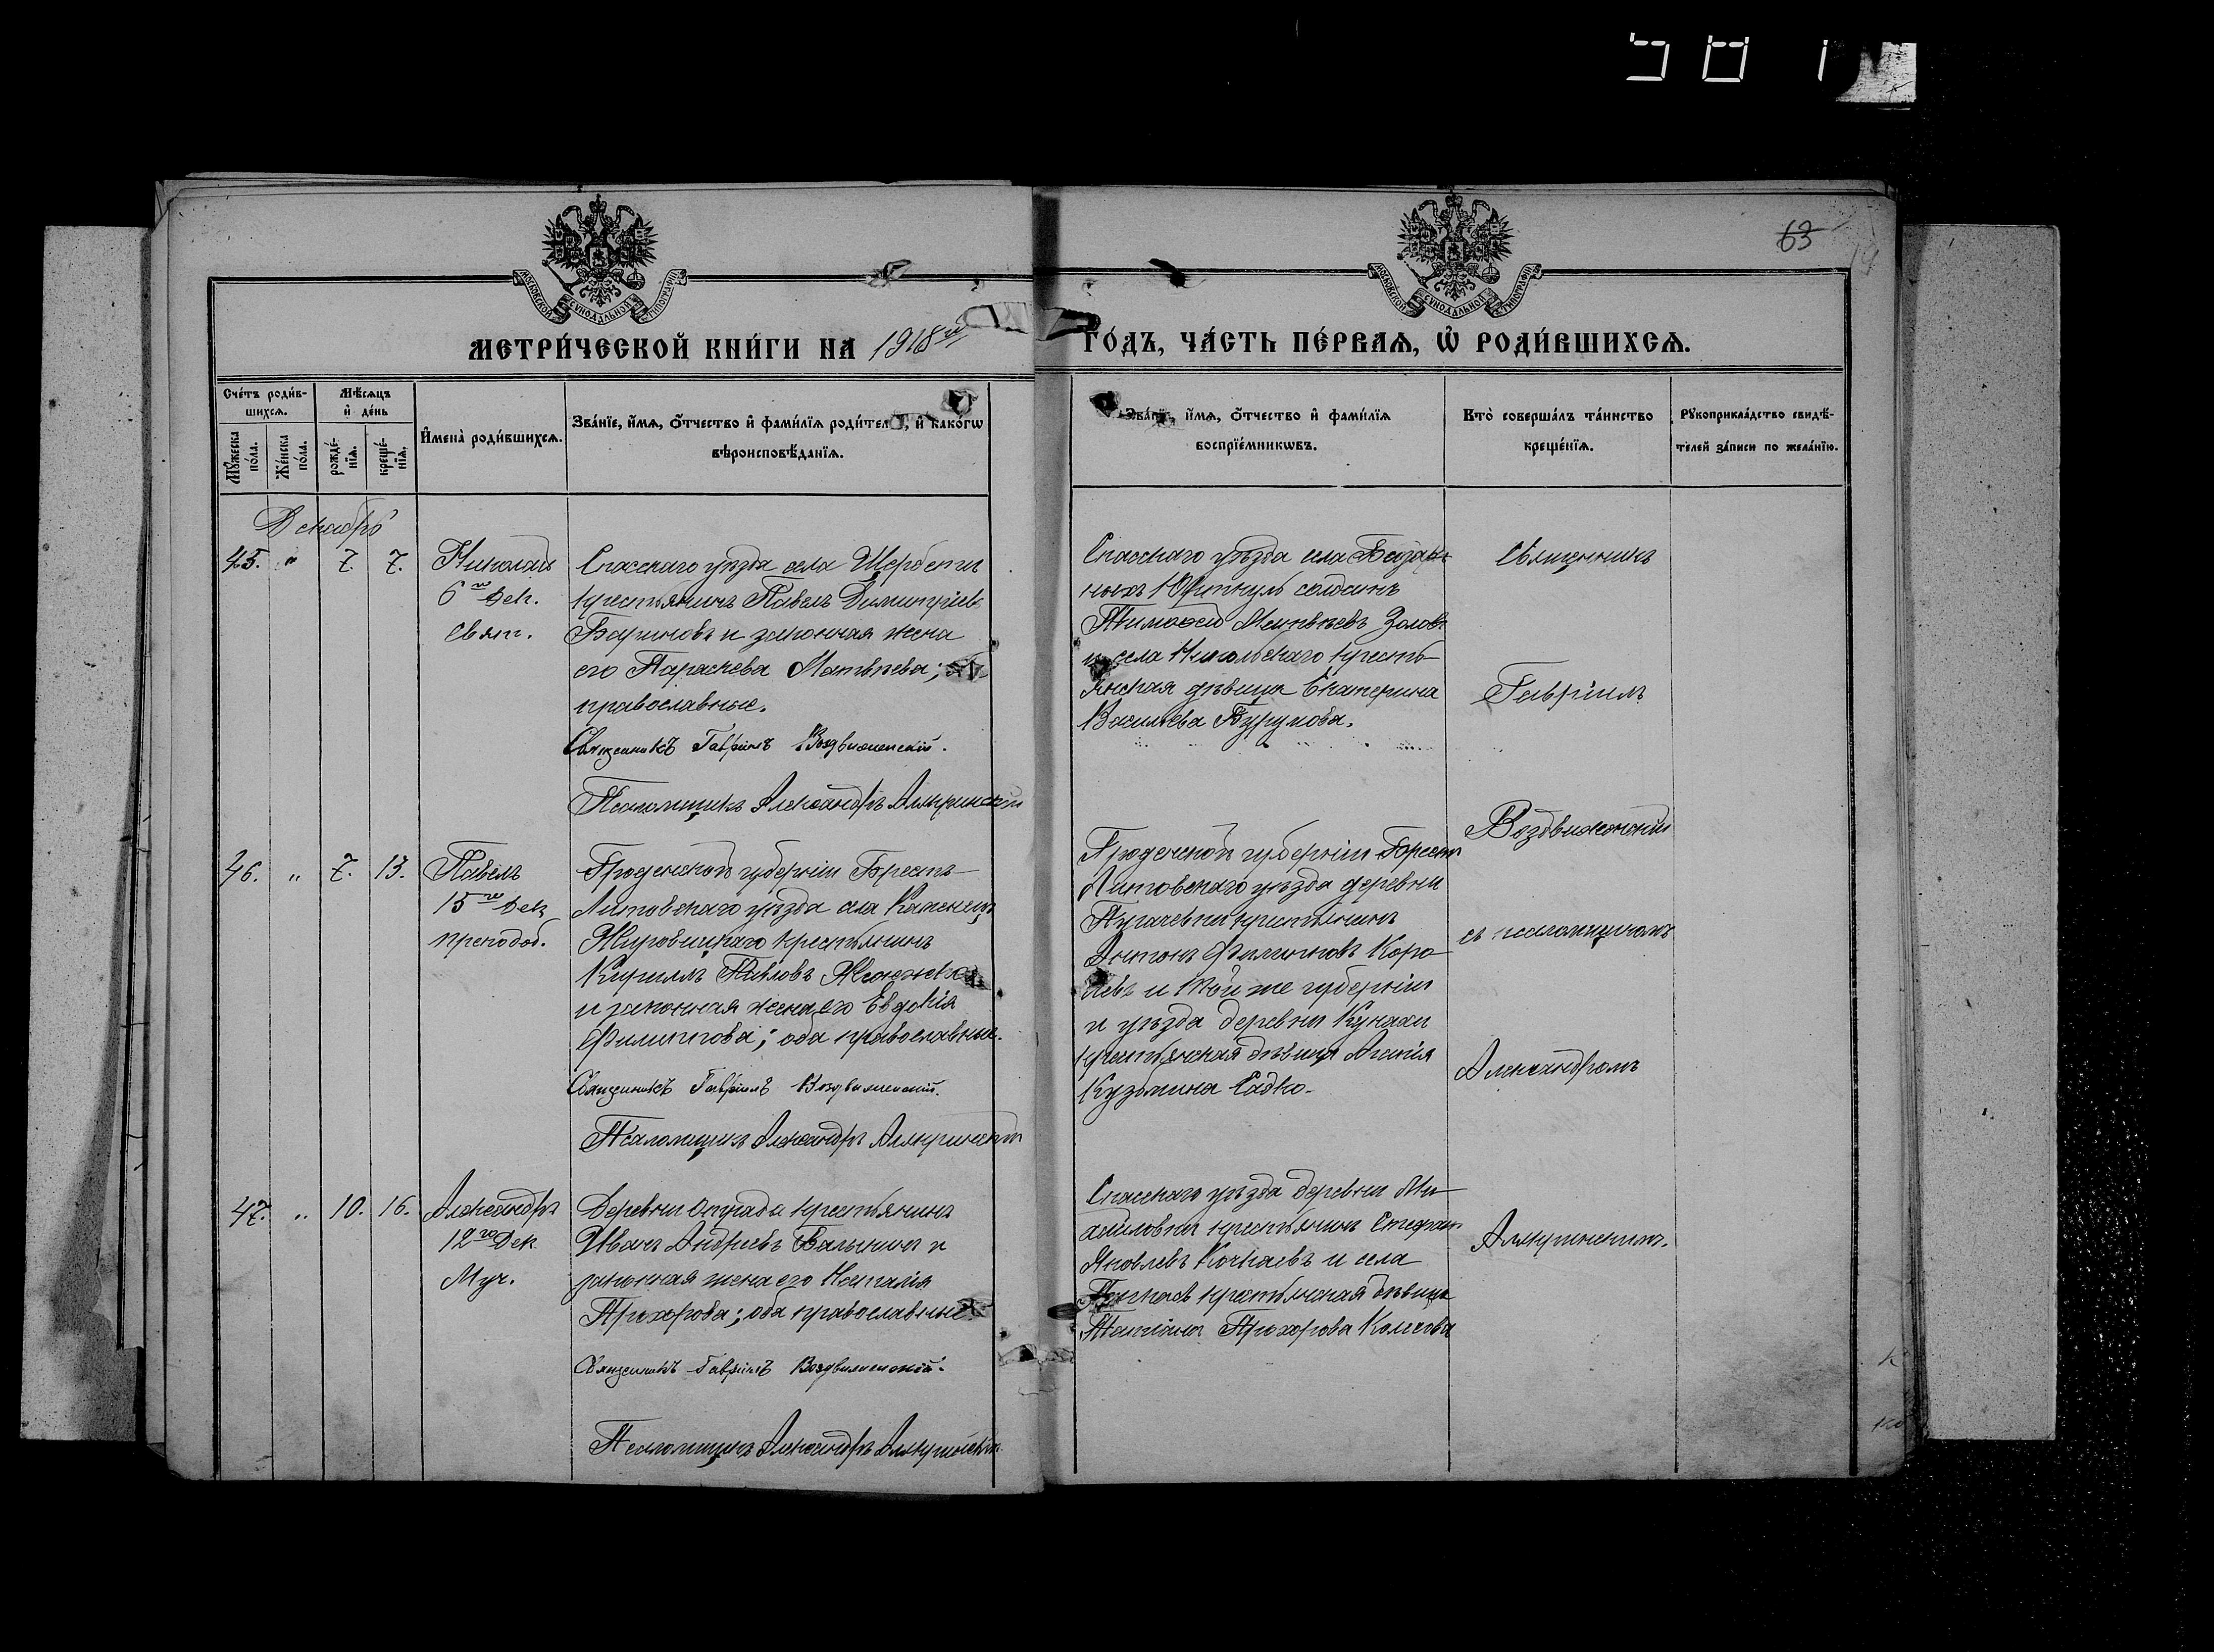 63
МЕТРИ́ЧЕСКОЙ КНИ́ГИ НА 1918й
ГО́ДЪ, ЧА́СТЬ ПЕ́РВАѦ, Ѡ҆ РОДИ́ВШИХСѦ.
Сче́тъ роди́в-
шихсѧ.
Мꙋ́жеска
по́ла.
Же́нска
по́ла.
Мѣ́сѧцъ
и҆ де́нь
рожде́-
нїѧ.
креще́-
нїѧ.
И҆мена̀ роди́вшихсѧ.
Зва́нїе, и҆́мѧ, ѻ҆́тчество и҆ фами́лїѧ роди́тел , и҆ како́гѡ
вѣроисповѣ́данїѧ.
Зва́нїе, и҆́мѧ, ѻ҆́тчество и҆ фами́лїѧ
воспрїе́мникѡвъ.
Кто̀ соверша́лъ та́инство
креще́нїѧ.
Рꙋкоприкла́дство свидѣ́-
телей за́писи по жела́нїю.
Декабрь
45. " 7. 7.
Николай
6го Дек.
свят.
Спасскаго уѣзда села Щербети
крестьянинъ Павелъ Димитріев
Бариновъ и законная жена
его Параскева Матвѣева;
православные.
Священникъ Гавріилъ Воздвиженскій.
Псаломщикъ Александръ Алякринскій
Спасскаго уѣзда села
солдатъ
Тимофей
и села Никольскаго кресть-
янская дѣвица Екатерина
Васильева
Священникъ
Гавріилъ
Воздвиженскій
съ псаломщикомъ
Александромъ
Алякринскимъ.
46. " 7. 13.
Павелъ
15го Дек
преподоб.
Гродненской губерніи Брестъ-
Литовскаго уѣзда села Каменецъ
Жировицкаго крестьянинъ
Кириллъ Павловъ
и законная жена его Евдокія
Филиппова; оба православные.
Священникъ Гавріилъ Воздвиженскій.
Псаломщикъ Александръ Алякринскій
Гродненской губерніи Брестъ
Литовскаго уѣзда деревни
крестьянинъ
Антонъ Филипповъ Коро-
левъ и той же губерніи
и уѣзда деревни
крестьянская дѣвица
Кузьмина
47. " 10. 16.
Александръ
12го Дек
Муч.
Деревни Отрада крестьянинъ
Иванъ Андреевъ и
законная жена его Наталія
Прохорова; оба православные.
Священникъ Гавріилъ Воздвиженскій.
Псаломщикъ Александръ Алякринскій
Спасскаго уѣзда деревни Ми-
хайловки крестьянинъ Стефанъ
Яковлевъ и села
крестьянская дѣвица
Татіана Прохорова